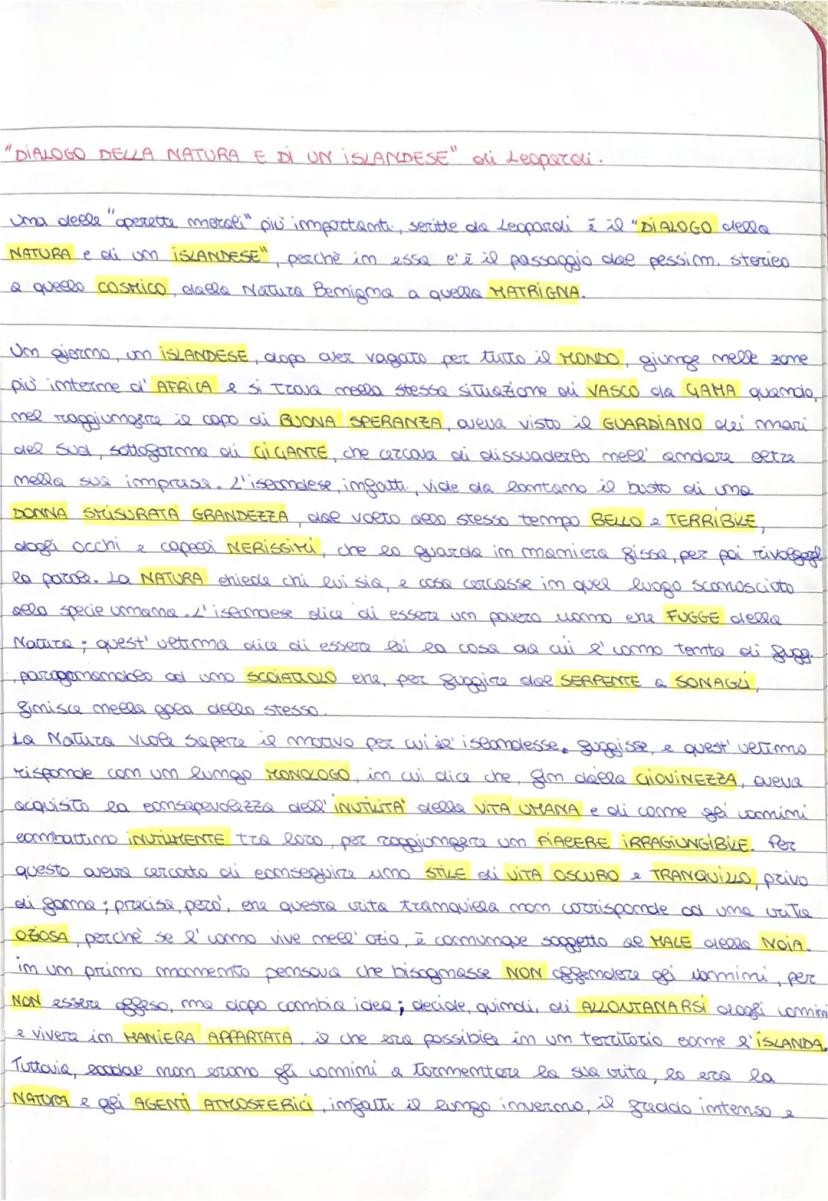 "DIALOGO DELLA NATURA E DI UN ISLANDESE" di Leopardi.
Una delle "operette morali" più importanti, scritte da Leopardi è il "DIALOGO della
NATURA e di un ISLANDESE", perchè in essa c'è il passaggio dal pessim. storico
a quello COSMICO, dalla Natura Benigna a quella MATRIGNA.
Un giorno, un ISLANDESE, dopo aver vagato per tutto il MONDO, giunge nelle zone
più interne d'AFRICA e si trova nella stessa situazione di VASCO da GAMA quando,
nel raggiungere il capo di BUONA SPERANZA, aveva visto il GUARDIANO dei mari
del Sud, sottoforma di GIGANTE, che cercava di dissuaderlo nell'andare oltre
nella sua impresa. L'islandese, infatti, vide da lontano il busto di una
DONNA SMISURATA GRANDEZZA, dal volto allo stesso tempo BELLO e TERRIBILE,
dagli occhi e capelli NERISSIMI, che lo guarda in maniera fissa, per poi rivolgergli
la parola. La NATURA chiede chi lui sia, e cosa cercasse in quel luogo sconosciuto
alla specie umana. L'islandese dice di essere un povero uomo che FUGGE dalla
Natura; quest'ultima dice di essere lei la cosa da cui l'uomo tenta di fugg.
, paragonandolo ad uno SCOIATTOLO che, per fuggire dal SERPENTE a SONAGLI,
finisce nella gola dello stesso.
La Natura vuole sapere il motivo per cui l'islandesse fuggisse, e quest'ultimo
risponde con un lungo MONOLOGO, in cui dice che, fin dalla GIOVINEZZA, aveva
acquisito la consapevolezza dell'INUTILITA' della VITA UMANA e di come gli uomini
combattino INUTILMENTE tra loro, per raggiungere un PIACERE IRRAGIUNGIBILE. Per
questo aveva cercato di conseguire uno STILE di VITA OSCURO e TRANQUILLO, privo
di fama; precisa, però, che questa vita tranquilla non corrisponde ad una vita
OZIOSA, perchè se l'uomo vive nell'ozio, è comunque soggetto al MALE della NOIA.
in un primo momento pensava che bisognasse NON offendere gli uomini, per
NON essere offeso, ma dopo cambia idea; decide, quindi, di ALLONTANARSI dagli uomini
e vivere in MANIERA APPARTATA, il che era possibile in un territorio come l'ISLANDA.
Tuttavia, laddove non erano gli uomini a tormentare la sua vita, lo era la
NATURA e gli AGENTI ATMOSFERICI, infatti il lungo inverno, il freddo intenso e